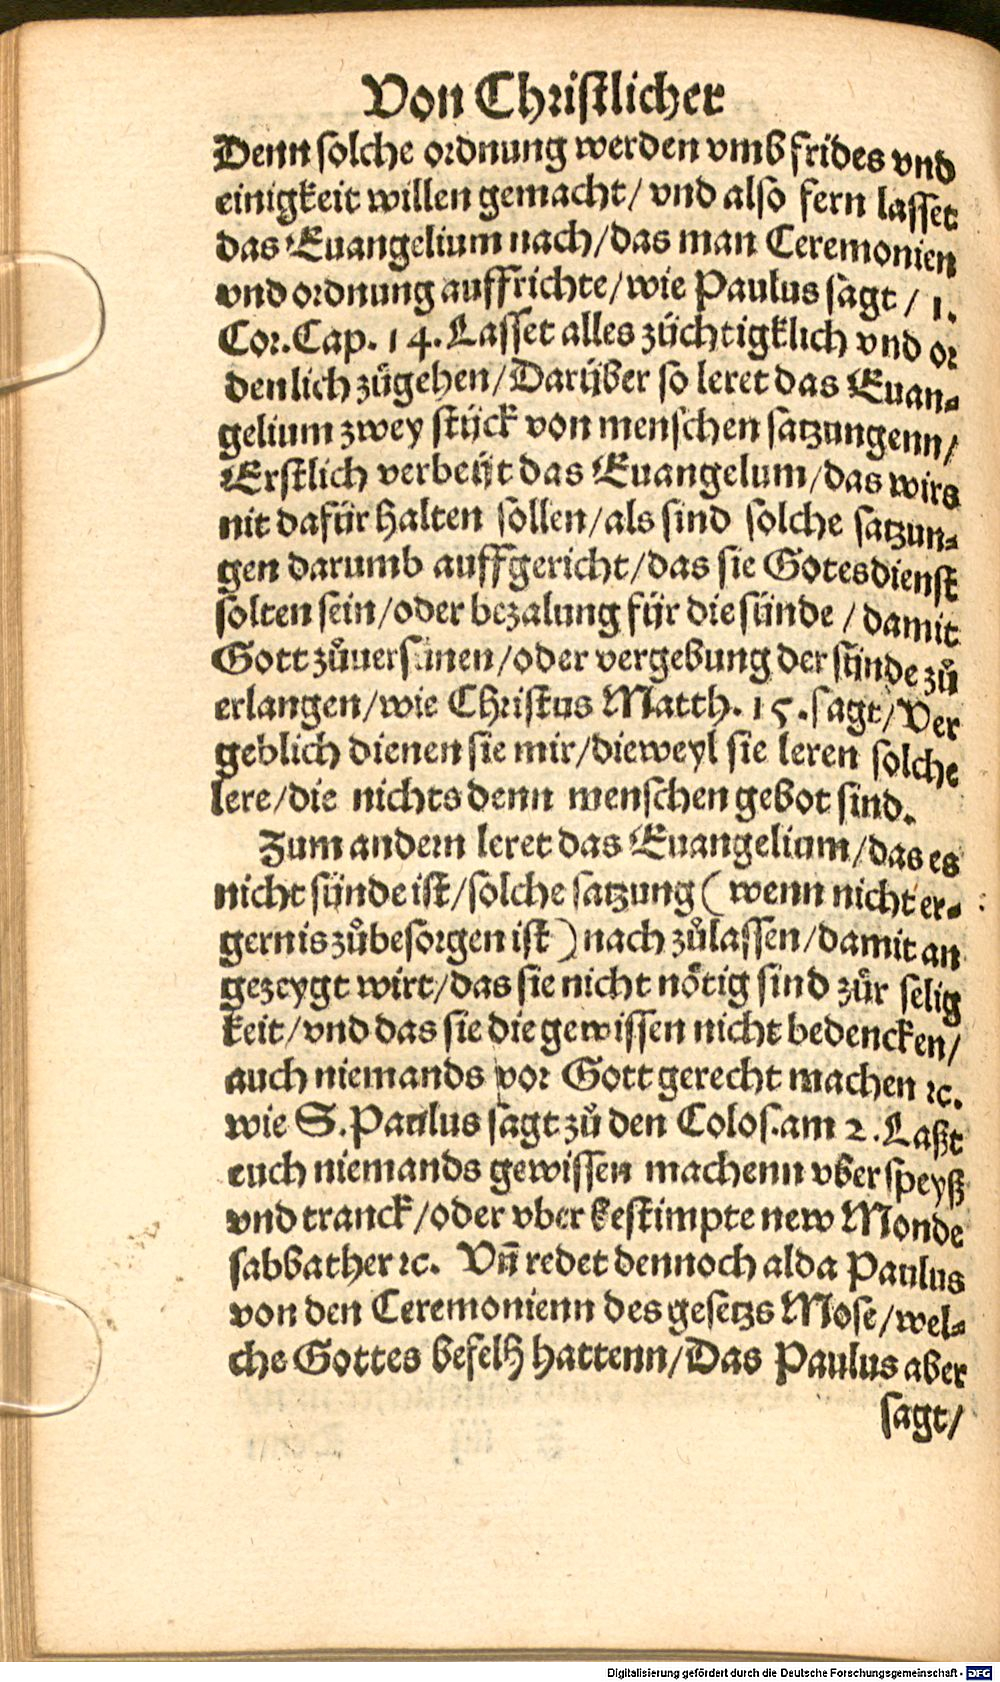 Von Christlicher
Denn solche ordnung werden vmb frides vnd
einigkeit willen gemacht/ vnd also fern lasset
das Euangelium nach/das man Ceremonien
vnd ordnung auffrichte/wie Paulus sagt / 1.
Cor. Cap. 14. Lasset alles züchtigklich vnd or
denlich zůgehen/Darüber so leret das Euan-
gelium zwey stück von menschen satzungenn/
Erstlich verbeüt das Euangelum/das wirs
nit dafür halten sollen/als sind solche satzun-
gen darumb auffgericht/das sie Gotesdienst
solten sein/oder bezalung für die sünde / damit
Gott zůuersünen/oder vergebung der sünde zů
erlangen/wie Christus Matth. 15. sagt/Ver
geblich dienen sie mir/dieweyl sie leren solche
lere/die nichts denn menschen gebot sind.
Zum andern leret das Euangelium/das es
nicht sünde ist/solche satzung (wenn nicht er-
gernis zůbesorgen ist) nach zůlassen/damit an
gezeygt wirt/das sie nicht nötig sind zůr selig
keit/vnd das sie die gewissen nicht bedencken/
auch niemands vor Gott gerecht machen ⁊c.
wie S. Paulus sagt zů den Colos. am 2. Laßt
euch niemands gewissen machenn vber speyß
vnd tranck/oder vber bestimpte new Monde
sabbather ⁊c. Vñ redet dennoch alda Paulus
von den Ceremonienn des gesetzs Mose/wel-
che Gottes befelh hattenn/Das Paulus aber
sagt/
Digitalisierung gefördert durch die Deutsche Forschungsgemeinschaft - DFG